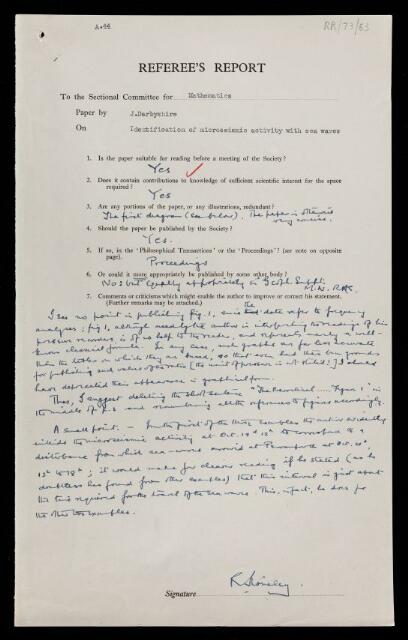 A.44
RR/73/63
REFEREE'S REPORT
To the Sectional Committee for Mathematics
Paper by J.Darbyshire
On Identification of microseismic activity with sea waves
1. Is the paper suitable for reading before a meeting of the Society?
Yes ✓
2. Does it contain contributions to knowledge of sufficient scientific interest for the space
required?
Yes
3. Are any portions of the paper, or any illustrations, redundant?
The first diagram (see below). The paper is otherwise
very concise.
4. Should the paper be published by the Society?
Yes.
5. If so, in the 'Philosophical Transactions' or the 'Proceedings'? (see note on opposite
page).
Proceedings
6. Or could it more appropriately be published by some other body?
No: but equally appropriately in Geoph. Suppl.
M.N. R.A.S.
7. Comments or criticisms which might enable the author to improve or correct his statement.
(Further remarks may be attached.)
I see no point in publishing fig. 1, since the data refer to frequency
analyses: fig 1, although needed by the author in interpreting the readings of his
pressure recorders, is of no help to the reader, and represents merely a well-
known classical formula. In any case, such graphs are far less accurate
than the tables on which they are based, so that even had there been grounds
for publishing such values of the ratio [the unit of pressure is not stated!] I should
have deprecated their appearance in graphical form.
Thus, I suggest deleting the short sentence "The theoretical ... figure 1" in
the middle of p.2 and renumbering all the references to figures accordingly.
A small point. — In the first of the three examples the author evidently
the microseismic activity at Oct. to correspond to a
disturbance from which sea-waves arrived at Perranporth at Oct.
; it would make for clearer reading if he stated (as he
doubtless has found from other examples) that this interval is just about
the time required for the travel of the sea waves. This, in fact, he does for
the other two examples.
Signature R. Stoneley.